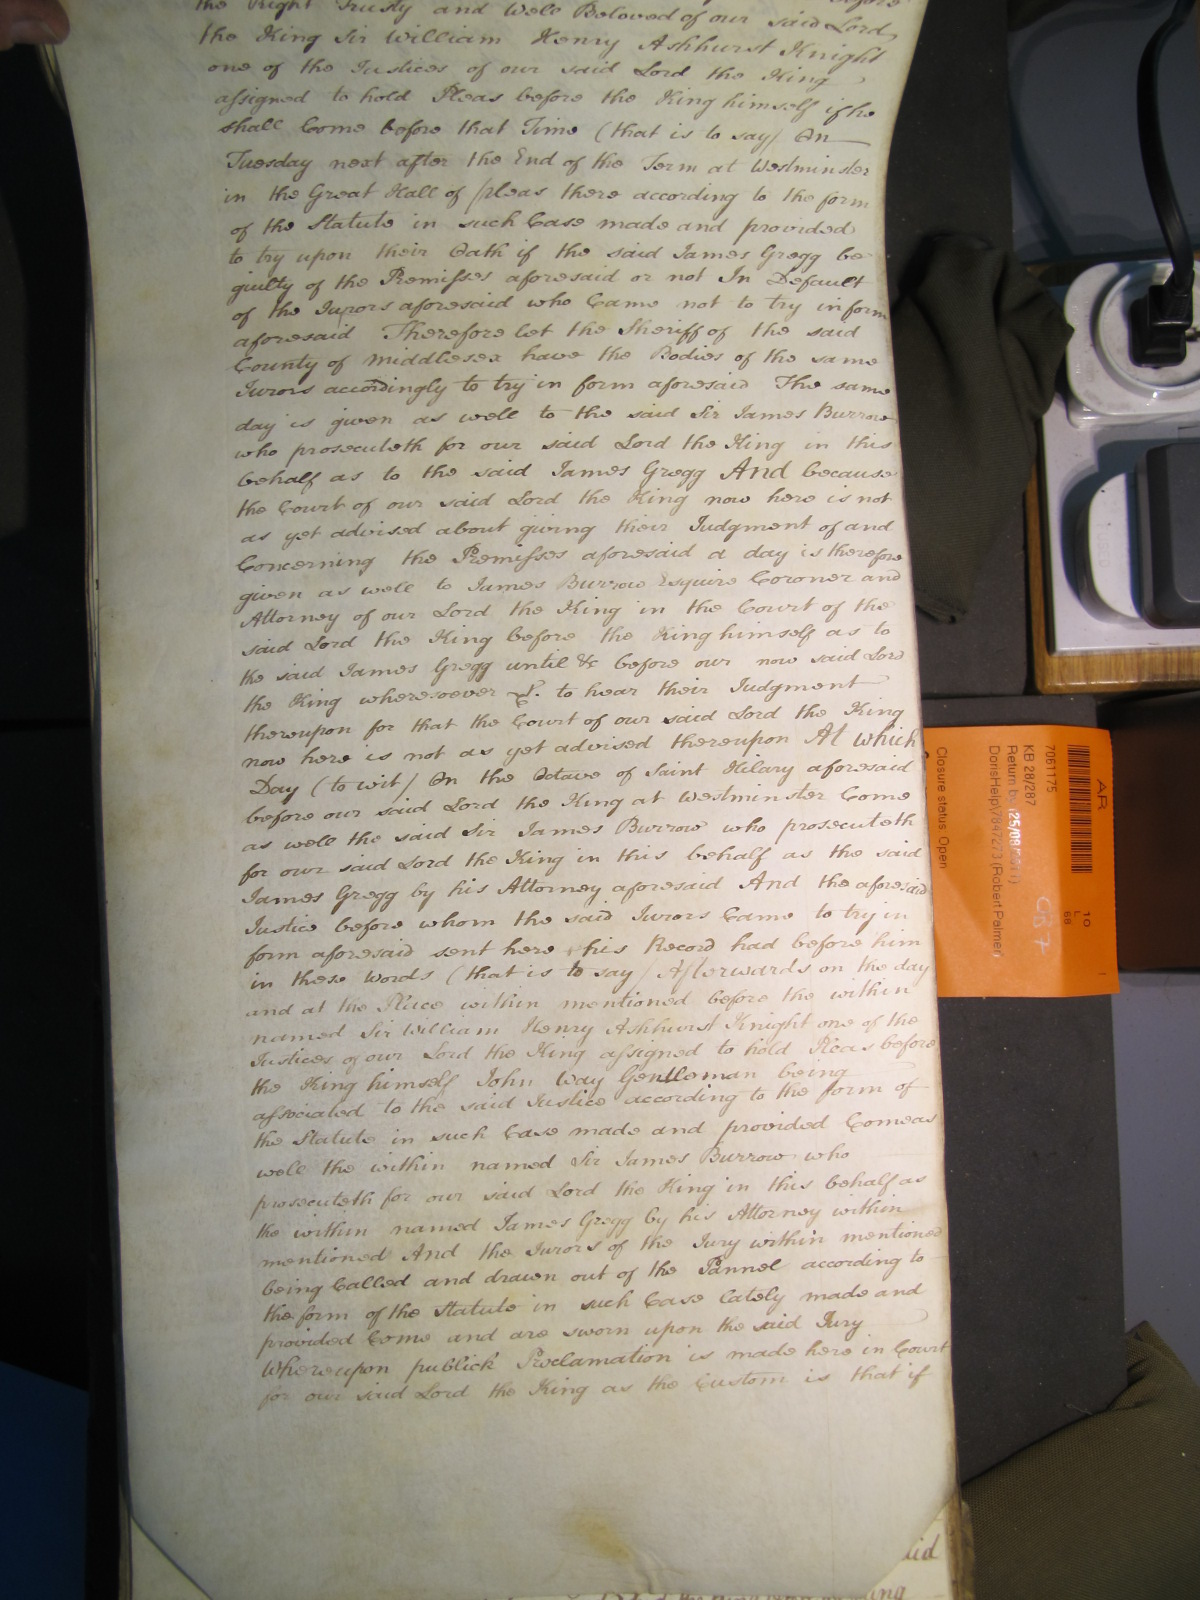 the Right Trusty and Well Beloved of our said Lord
the King Sir William Henry Ashhurst Knight
one of the Justices of our said Lord the King
assigned to hold Pleas before the King himself if he
shall Come before that Time (that is to say) On
Tuesday next after the End of the Term at Westminster
in the Great Hall of pleas there according to the form
of the Statute in such Case made and provided
to try upon their Oath if the said James Gregg be
guilty of the Premisses aforesaid or not In Default
of the Jurors aforesaid who Came not to try in form
aforesaid Therefore let the Sheriff of the said
County of Middlesex have the Bodies of the same
Jurors accordingly to try in form aforesaid The same
day is given as well to the said Sir James Burrow
who prosecuteth for our said Lord the King in this
behalf as to the said James Gregg And because
the Court of our said Lord the King now here is not
as yet advised about giving their Judgment of and
Concerning the Premisses aforesaid a day is therefore
given as well to James Burrow Esquire Coroner and
Attorney of our Lord the King in the Court of the
said Lord the King before the King himself as to
the said James Gregg until &c before our now said Lord
the King wheresoever &c. to hear their Judgment
thereupon for that the Court of our said Lord the King
now here is not as yet advised thereupon At which
Day (to wit) On the Octave of Saint Hilary aforesaid
before our said Lord the King at Westminster Come
as well the said Sir James Burrow who prosecuteth
for our said Lord the King in this behalf as the said
James Gregg by his Attorney aforesaid And the aforesaid
Justice before whom the said Jurors Came to try in
form aforesaid sent here his Record had before him
in these Words (that is to say) Afterwards on the day
and at the Place within mentioned before the within
named Sir William Henry Ashhurst Knight one of the
Justices of our Lord the King assigned to hold Pleas before
the King himself John Way Gentleman being
associated to the said Justice according to the form of
the Statute in such Case made and provided Come as
well the within named Sir James Burrow who
prosecuteth for our said Lord the King in this behalf as
the within named James Gregg by his Attorney within
mentioned And the Jurors of the Jury within mentioned
being Called and drawn out of the Pannel according to
the form of the Statute in such Case lately made and
provided Come and are sworn upon the said Jury
Whereupon publick Proclamation is made here in Court
for our said Lord the King as the Custom is that if
AR
7061175
KB 28/287
Return by (25/08/2011)
DorisHelp\7847273 (Robert Palmer)
Closure status: Open
10
L
68